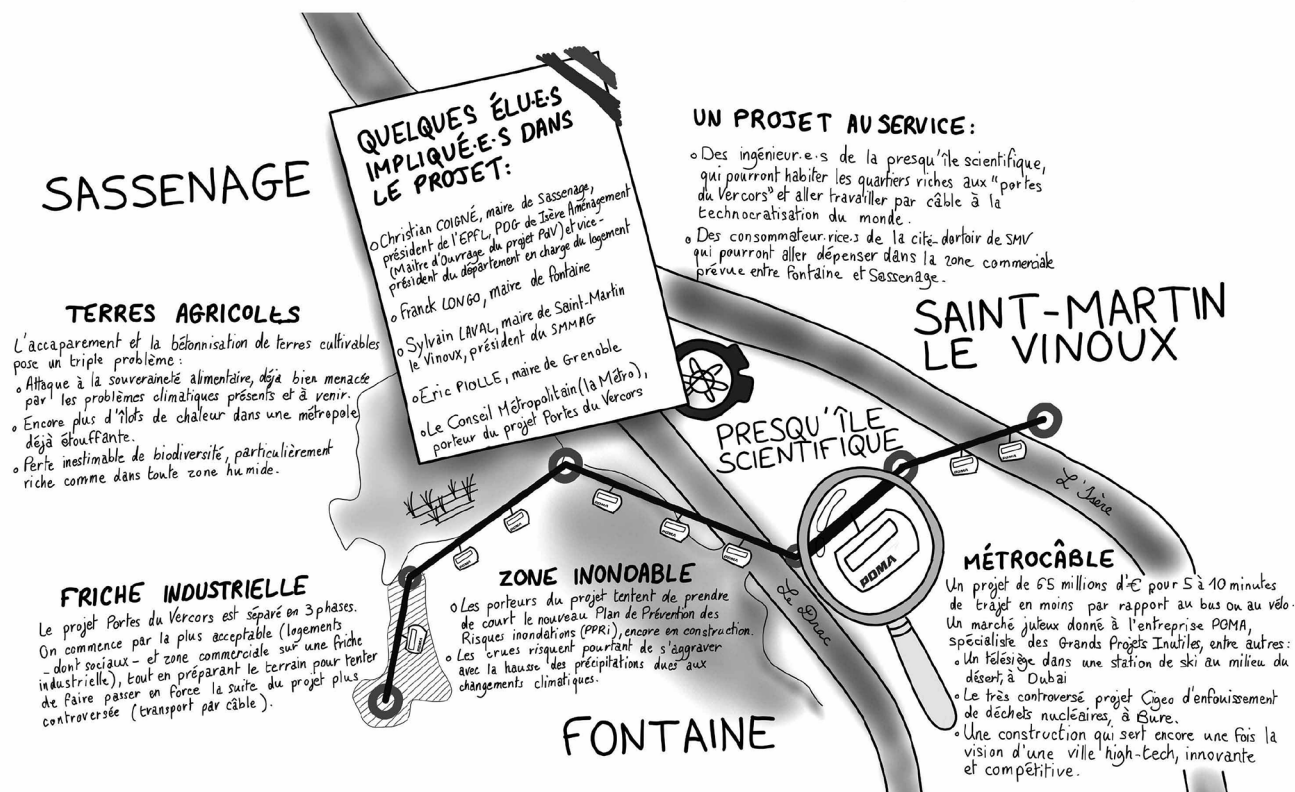 SASSENAGE
QUELQUES ÉLU·E·S
IMPLIQUÉ·E·S DANS
LE PROJET:
Christian COIGNÉ, maire de Sassenage,
président de l'EPFL, PDG de Isère Aménagement
(Maître d'Ouvrage du projet PdV) et vice-
président du département en charge du logement
Franck LONGO, maire de Fontaine
Sylvain LAVAL, maire de Saint-Martin
le Vinoux, président du SMMAG
Eric PIOLLE, maire de Grenoble
Le Conseil Métropolitain (la Métro),
porteur du projet Portes du Vercors
UN PROJET AU SERVICE:
Des ingénieur.e.s de la presqu'île scientifique,
qui pourront habiter les quartiers riches aux "portes
du Vercors" et aller travailler par câble à la
technocratisation du monde.
Des consommateur.rice.s de la cité-dortoir de SMV
qui pourront aller dépenser dans la zone commerciale
prévue entre Fontaine et Sassenage.
TERRES AGRICOLES
L'accaparement et la bétonnisation de terres cultivables
pose un triple problème :
Attaque à la souveraineté alimentaire, déjà bien menacée
par les problèmes climatiques présents et à venir.
Encore plus d'îlots de chaleur dans une métropole
déjà étouffante.
Perte inestimable de biodiversité, particulièrement
riche comme dans toute zone humide.
SAINT-MARTIN
LE VINOUX
PRESQU'ÎLE
SCIENTIFIQUE
L'Isère
POMA
POMA
POMA
POMA
POMA
POMA
POMA
POMA
POMA
FRICHE INDUSTRIELLE
Le projet Portes du Vercors est séparé en 3 phases.
On commence par la plus acceptable (logements
- dont sociaux - et zone commerciale sur une friche
industrielle), tout en préparant le terrain pour tenter
de faire passer en force la suite du projet plus
controversée (transport par câble).
ZONE INONDABLE
Les porteurs du projet tentent de prendre
de court le nouveau Plan de Prévention des
Risques inondations (PPRi), encore en construction.
Les crues risquent pourtant de s'aggraver
avec la hausse des précipitations dues aux
changements climatiques.
Le Drac
MÉTROCÂBLE
Un projet de 65 millions d'€ pour 5 à 10 minutes
de trajet en moins par rapport au bus ou au vélo.
Un marché juteux donné à l'entreprise POMA,
spécialiste des Grands Projets Inutiles, entre autres:
Un télésiège dans une station de ski au milieu du
désert, à Dubai
Le très controversé projet Cigeo d'enfouissement
de déchets nucléaires, à Bure.
Une construction qui sert encore une fois la
vision d'une ville high-tech, innovante
et compétitive.
FONTAINE